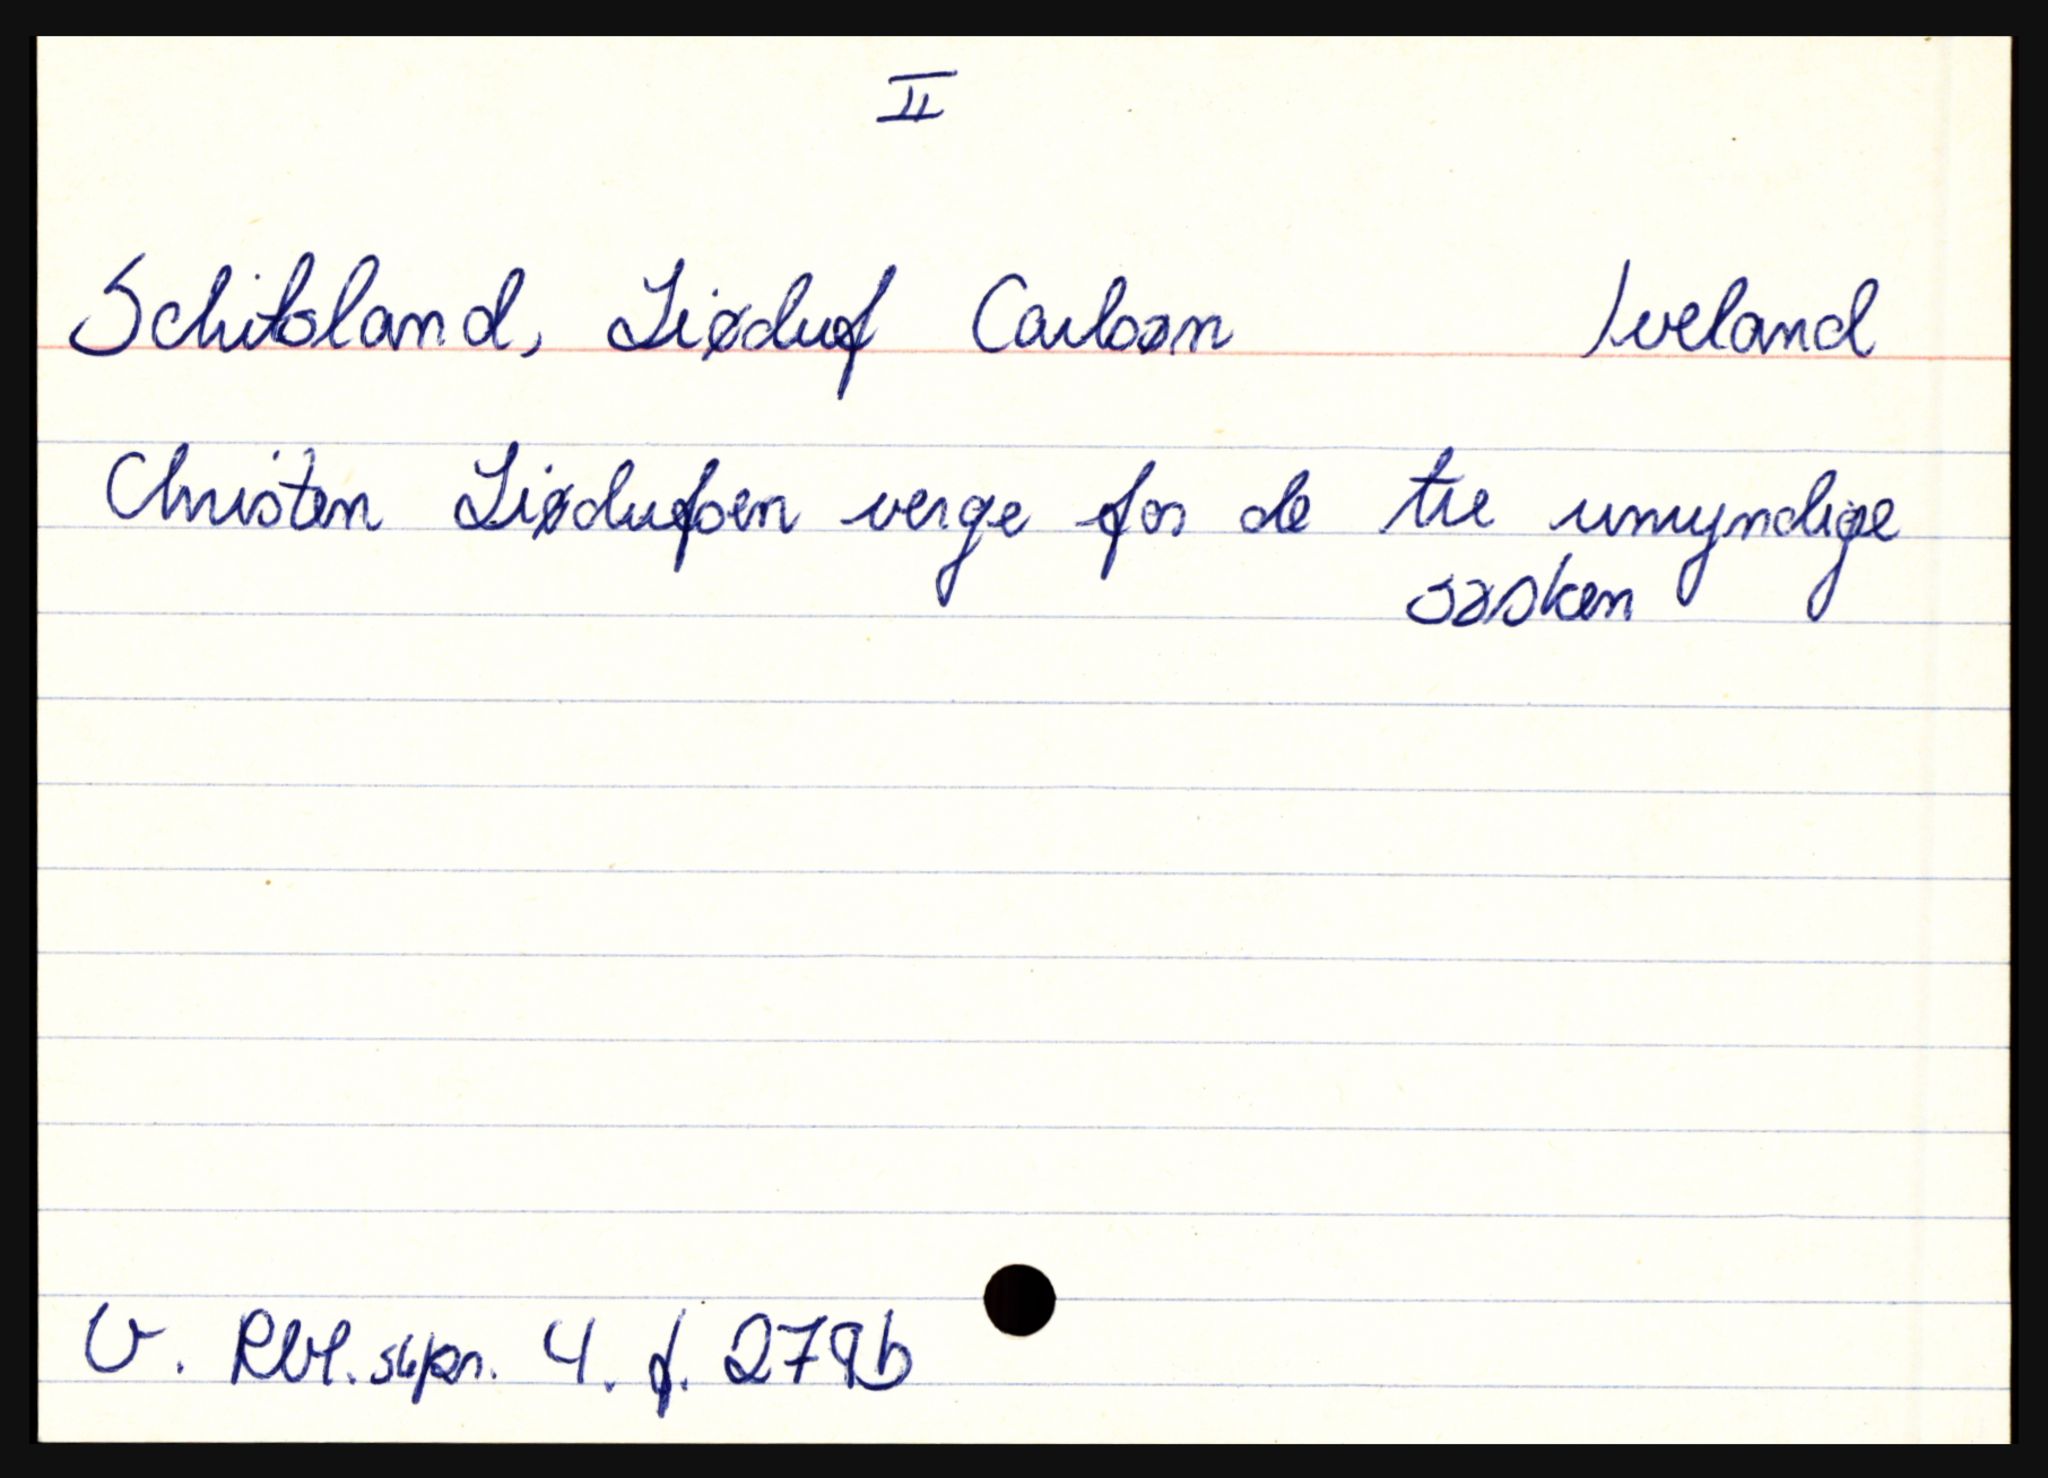 II
Schibland, Liøduf Carlsøn Iveland
Christen Liødufsen verge for de tre umyndige
søsken
V. Rbl. skpr. 4. f. 279b